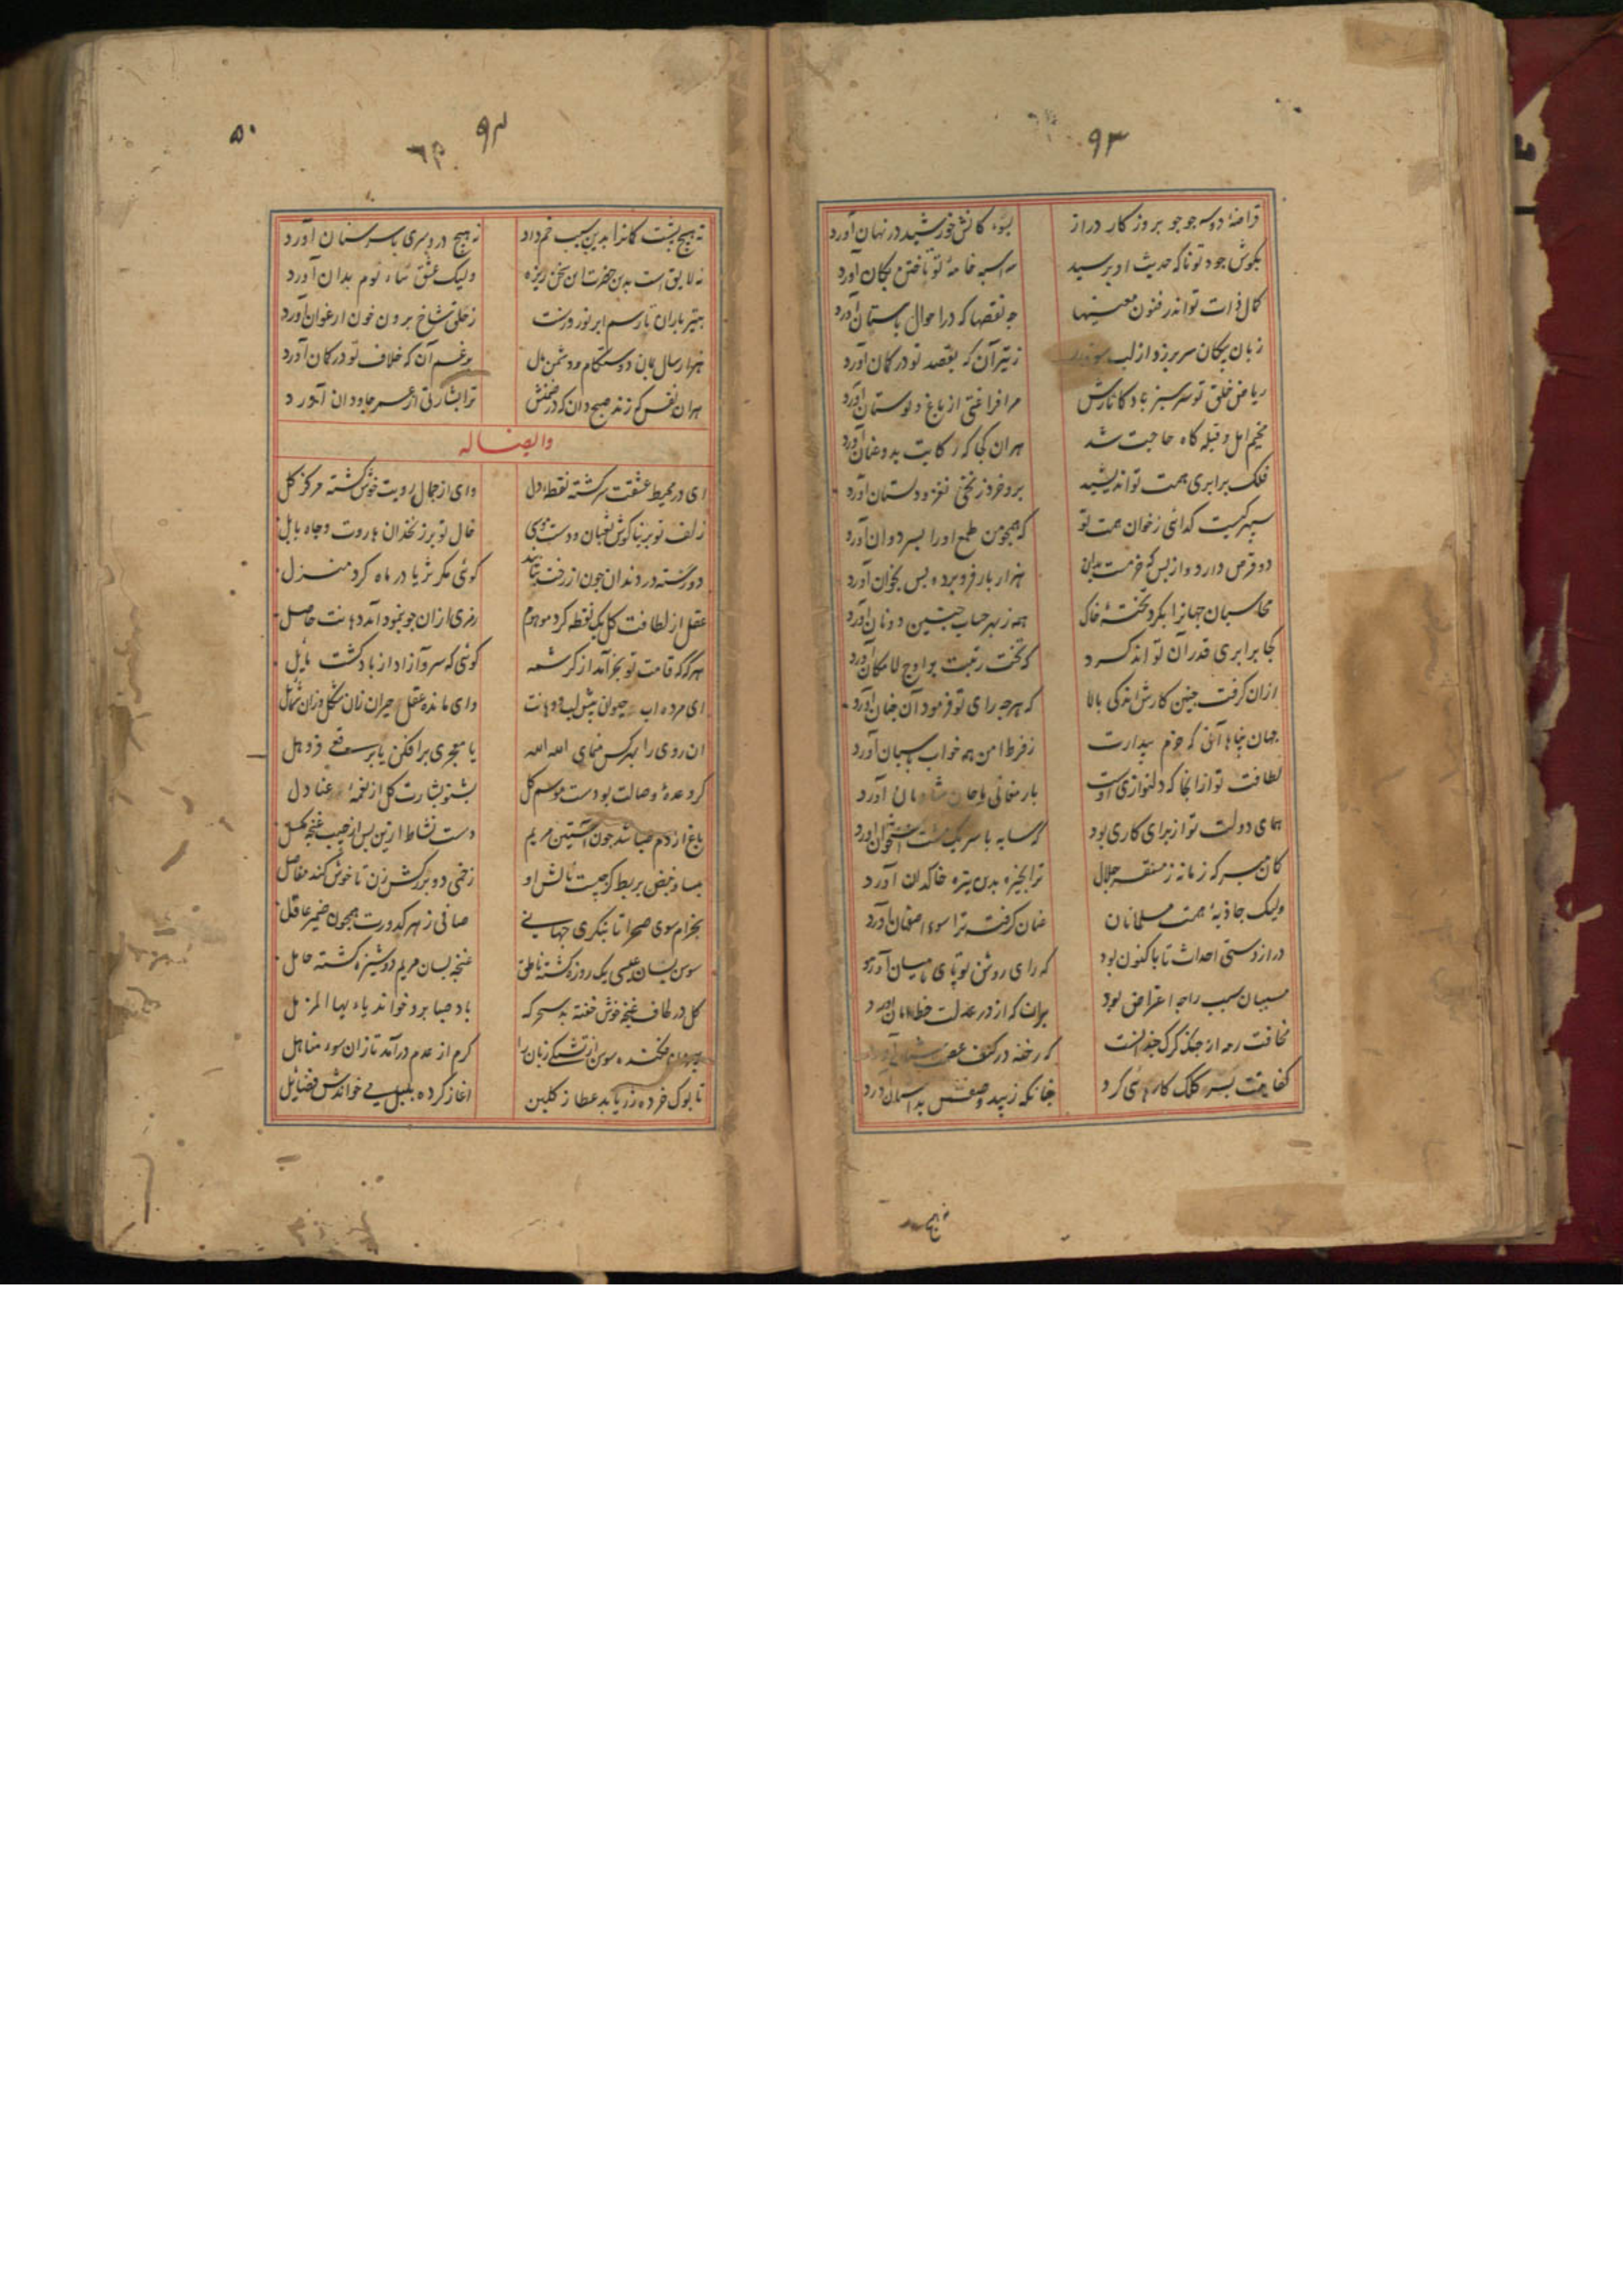 ۹۳
قراضهٔ دوسه جو جو بروز کار دراز بسوء کانش خورشید در نهان آورد
بکوش جود تو ناکه حدیث او برسید سه اسبه خامهٔ تو تاختن بکان آورد
کمال ذات تو اندر فنون معنیها چه نقصها که در احوال باستان آورد
زبان پیکان سر برزد از لب ز تیر آن که بقصد تو در کمان آورد
ریاض خلق تو سرسبز باد کاثارش مرا فراغتی از باغ و بوستان آورد
مخیم امل و قبله کاه حاجت شد هران کجا که رکابت بدو عنان آورد
فلک برابری همت تو اندیشید برو خرد ز نختی نغز و دلستان آورد
سپهر کیست کدائی ز خوان همت تو که همچو من طمع او را بسر دوان آورد
دو قرص دارد و از بس که هزار بار فرو برد و پس بخوان آورد
محاسبان جهانرا بکرد تختهٔ خاک همه ز بهر حساب چنین دو نان آورد
کجا برابری قدر آن تواند کرد که تخت رتبت بر اوج لامکان آورد
ازان کرفت چنین کارش اندکی بالا که هرچه رای تو فرمود آن چنان آورد
جهان پناها آنی که حزم بیدارت ز فرط امن همه خواب پاسبان آورد
لطافت تو ازانجا که دلنوازی اوست بارمغانی با جان آورد
همای دولت تو از برای کاری بود که سایه با سر یک مشت استخوان آورد
کمان مبر که زمانه ز مستقر جلال ترا بخیره بدین تیره خاکدان آورد
ولیک جاذبهٔ همت مسلمانان عنان کرفت ترا سوء اصفهان آورد
درازدستی احداث تا باکنون بود که رای روشن تو پای با میان آورد
مسببان سبب را چه اعتراض بود بران که از در عدلت خط امان آورد
مخافت رمه از چنک کرک چندانست که رخنه در کنف آورد
کفایتت بسر کلک کارهائی کرد چنانکه زیبد وصفش بداستان آورد
نه هیچ
۵۰
۹۴
نه هیچ پشت کمانرا بدین سبب خم داد نه هیچ در و سری با سر سنان آورد
نه لایق است بدین حضرت این سخن ریزه ولیک عشق ثناء توم بدان آورد
بتیر باران تا رسم ابر نوروزست ز حلق شاخ برون خون ارغوان آورد
هزار سال بمان دوستکام و دشمن مال برغم آن که خلاف تو در کمان آورد
هران نفس که زند صبح دان که در ضمنش ترا بشارتی از عمر جاودان آورد
وایضا له
ای در محیط عشقت سرکشته نقطهٔ دل وای از جمال رویت خوش کشته مرکز کل
زلف تو بر بناکوش ثعبان و دست موسی خال تو بر زنخدان هاروت و چاه بابل
دو رسته در دندان چون از رخت بتابند کوئی مکر ثریا در ماه کرد منزل
عقل از لطافت کل یک نقطه کرد موهوم رمزی ازان چو بنمود آمد دهانت حاصل
هرکه که قامت تو بخرامد از کرشمه کوئی که سرو آزاد از باد کشت مایل
ای مرده اب حیوان پیش لب و دهانت وای مانده عقل حیران زان شکل و زان شمایل
ان روی را بهرکس منمای الله الله یا معجری برافکن یا برقعی فروهل
کر وعدهٔ وصالت بودست موسم کل بشنو بشارت کل از نغمهٔ عنادل
باغ از دم صبا شد چون آستین مریم دست نشاط ازین پس از جیب غنچه مکسل
بساو نبض بربط کز چیست نالش او زخمی دو بر رکش زن تا خوش کند مفاصل
بخرام سوی صحرا تا بنکری جهانی صافی ز هر کدورت همچون ضمیر عاقل
سوسن بسان عیسی یک روزه کشته ناطق غنچه بسان مریم دوشیزه کشته حامل
کل در لحاف غنچه خوش خفته بد سحرکه باد صبا برو خواند یا ایها المزمل
سوسن از تشنکی زبان را کرم از عدم درآمد تازان سوء مناهل
تا بوک خرده زر یابد عطا ز کلبن اغاز کرده بلبل بی خواندش فضایل